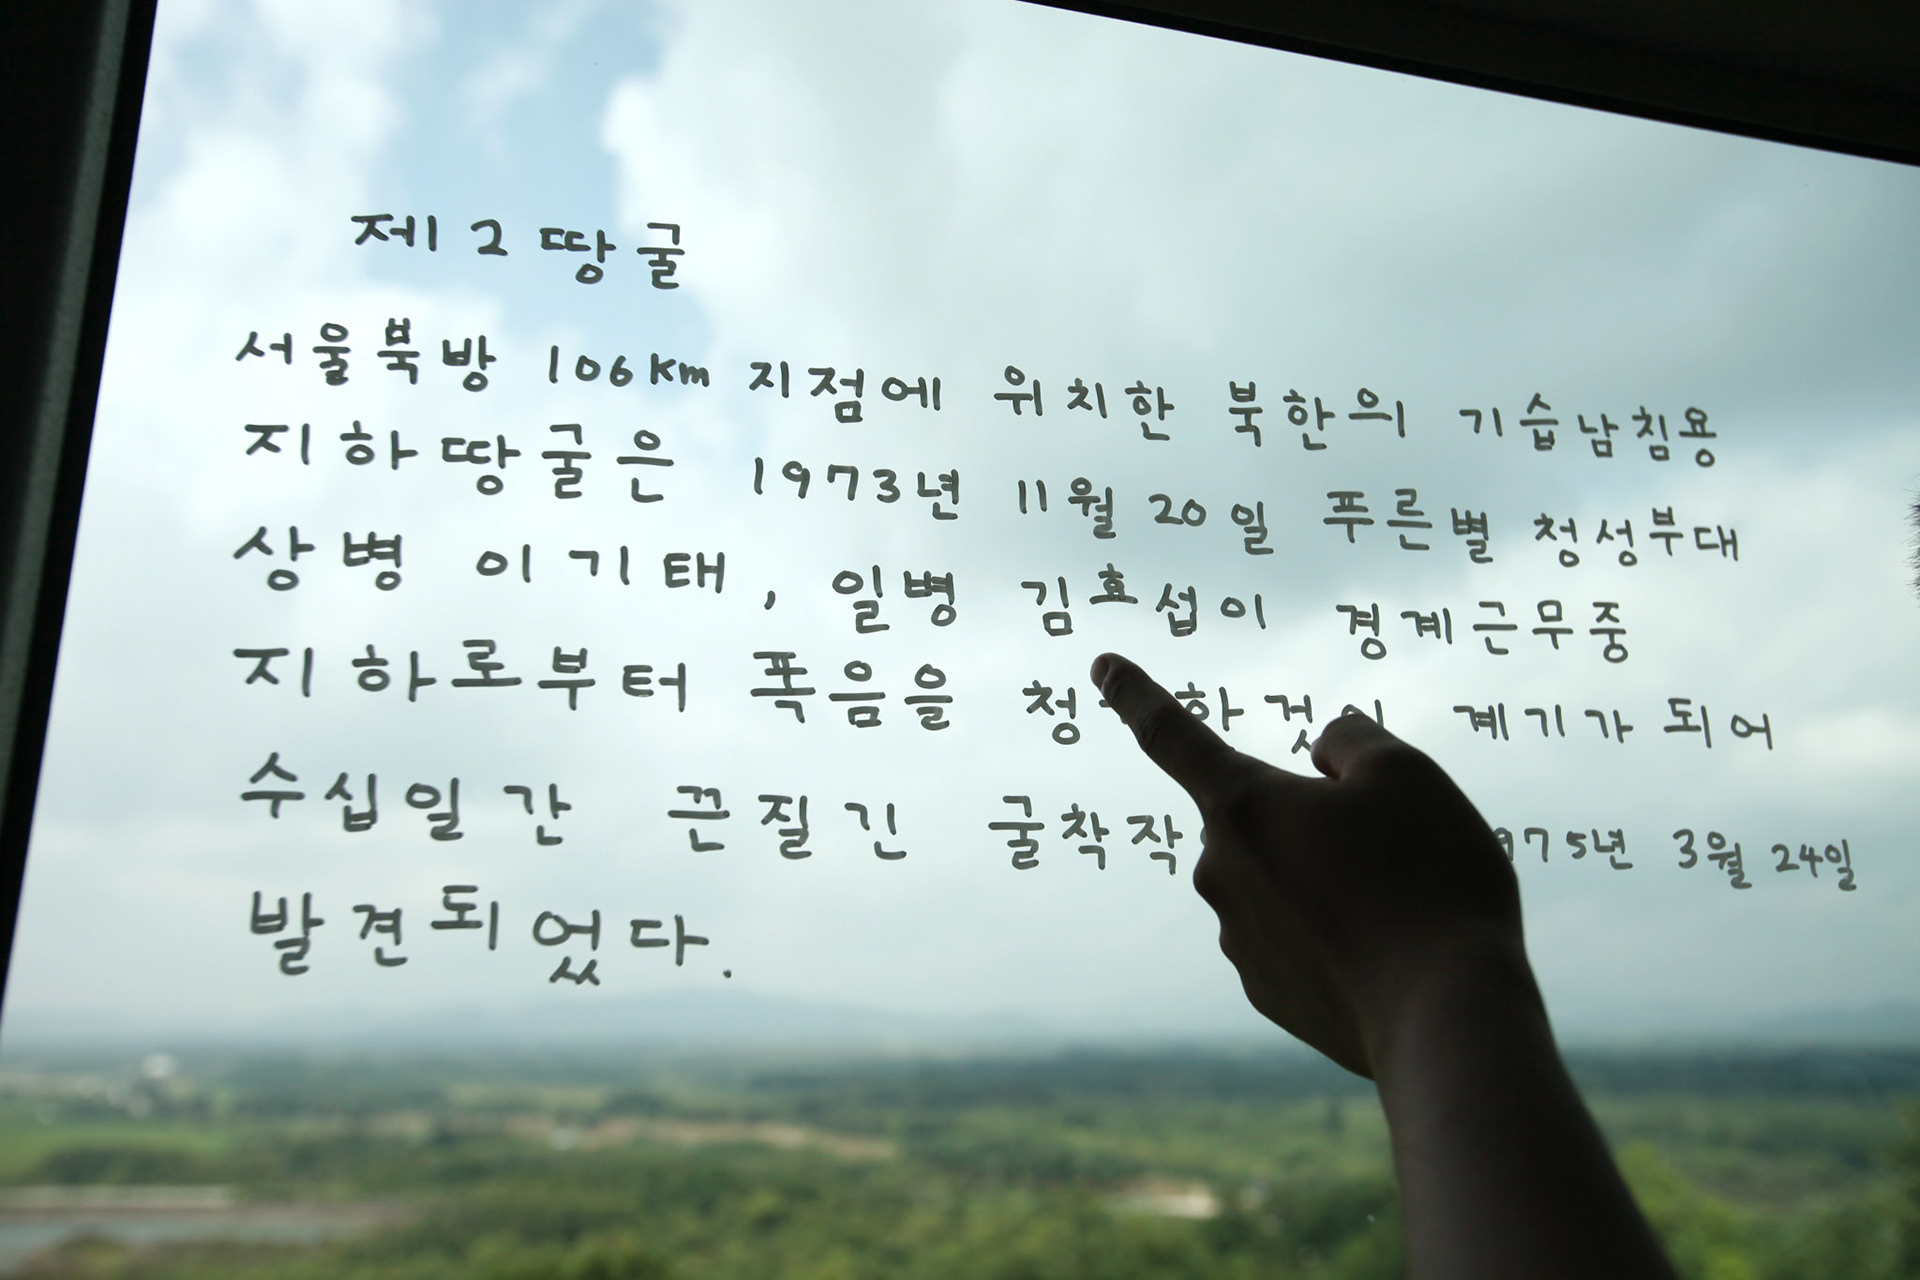 제 2 땅굴
서울북방 106km 지점에 위치한 북한의 기습남침용
지하땅굴은 1973년 11월 20일 푸른별 청성부대
상병 이기태, 일병 김효섭이 경계근무중
지하로부터 폭음을 계기가 되어
수십일간 끈질긴 굴착작 975년 3월 24일
발견되었다.